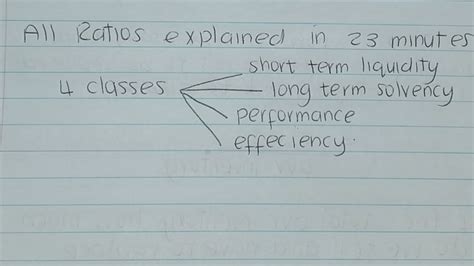 All Ratios explained in 23 minutes
short term liquidity
4 classes
long term solvency
performance
effeciency.